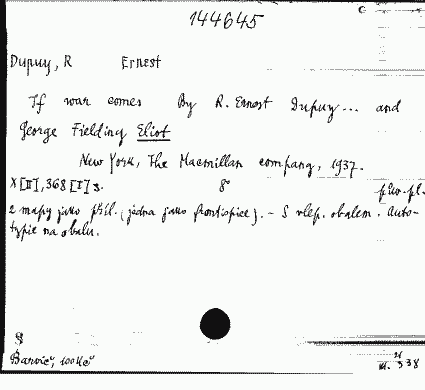 144645
Dupuy, R Ernest
If war comes By R. Ernest Dupuy... and
George Fielding Eliot
New York, The Macmillan company, 1937.
X [II], 368 [I] s. 8° pův. pl.
2 mapy jako příl. (jedna jako frontispice). - S vlep. obalem. Auto-
typie na obalu.
Barvič, 100 Kč